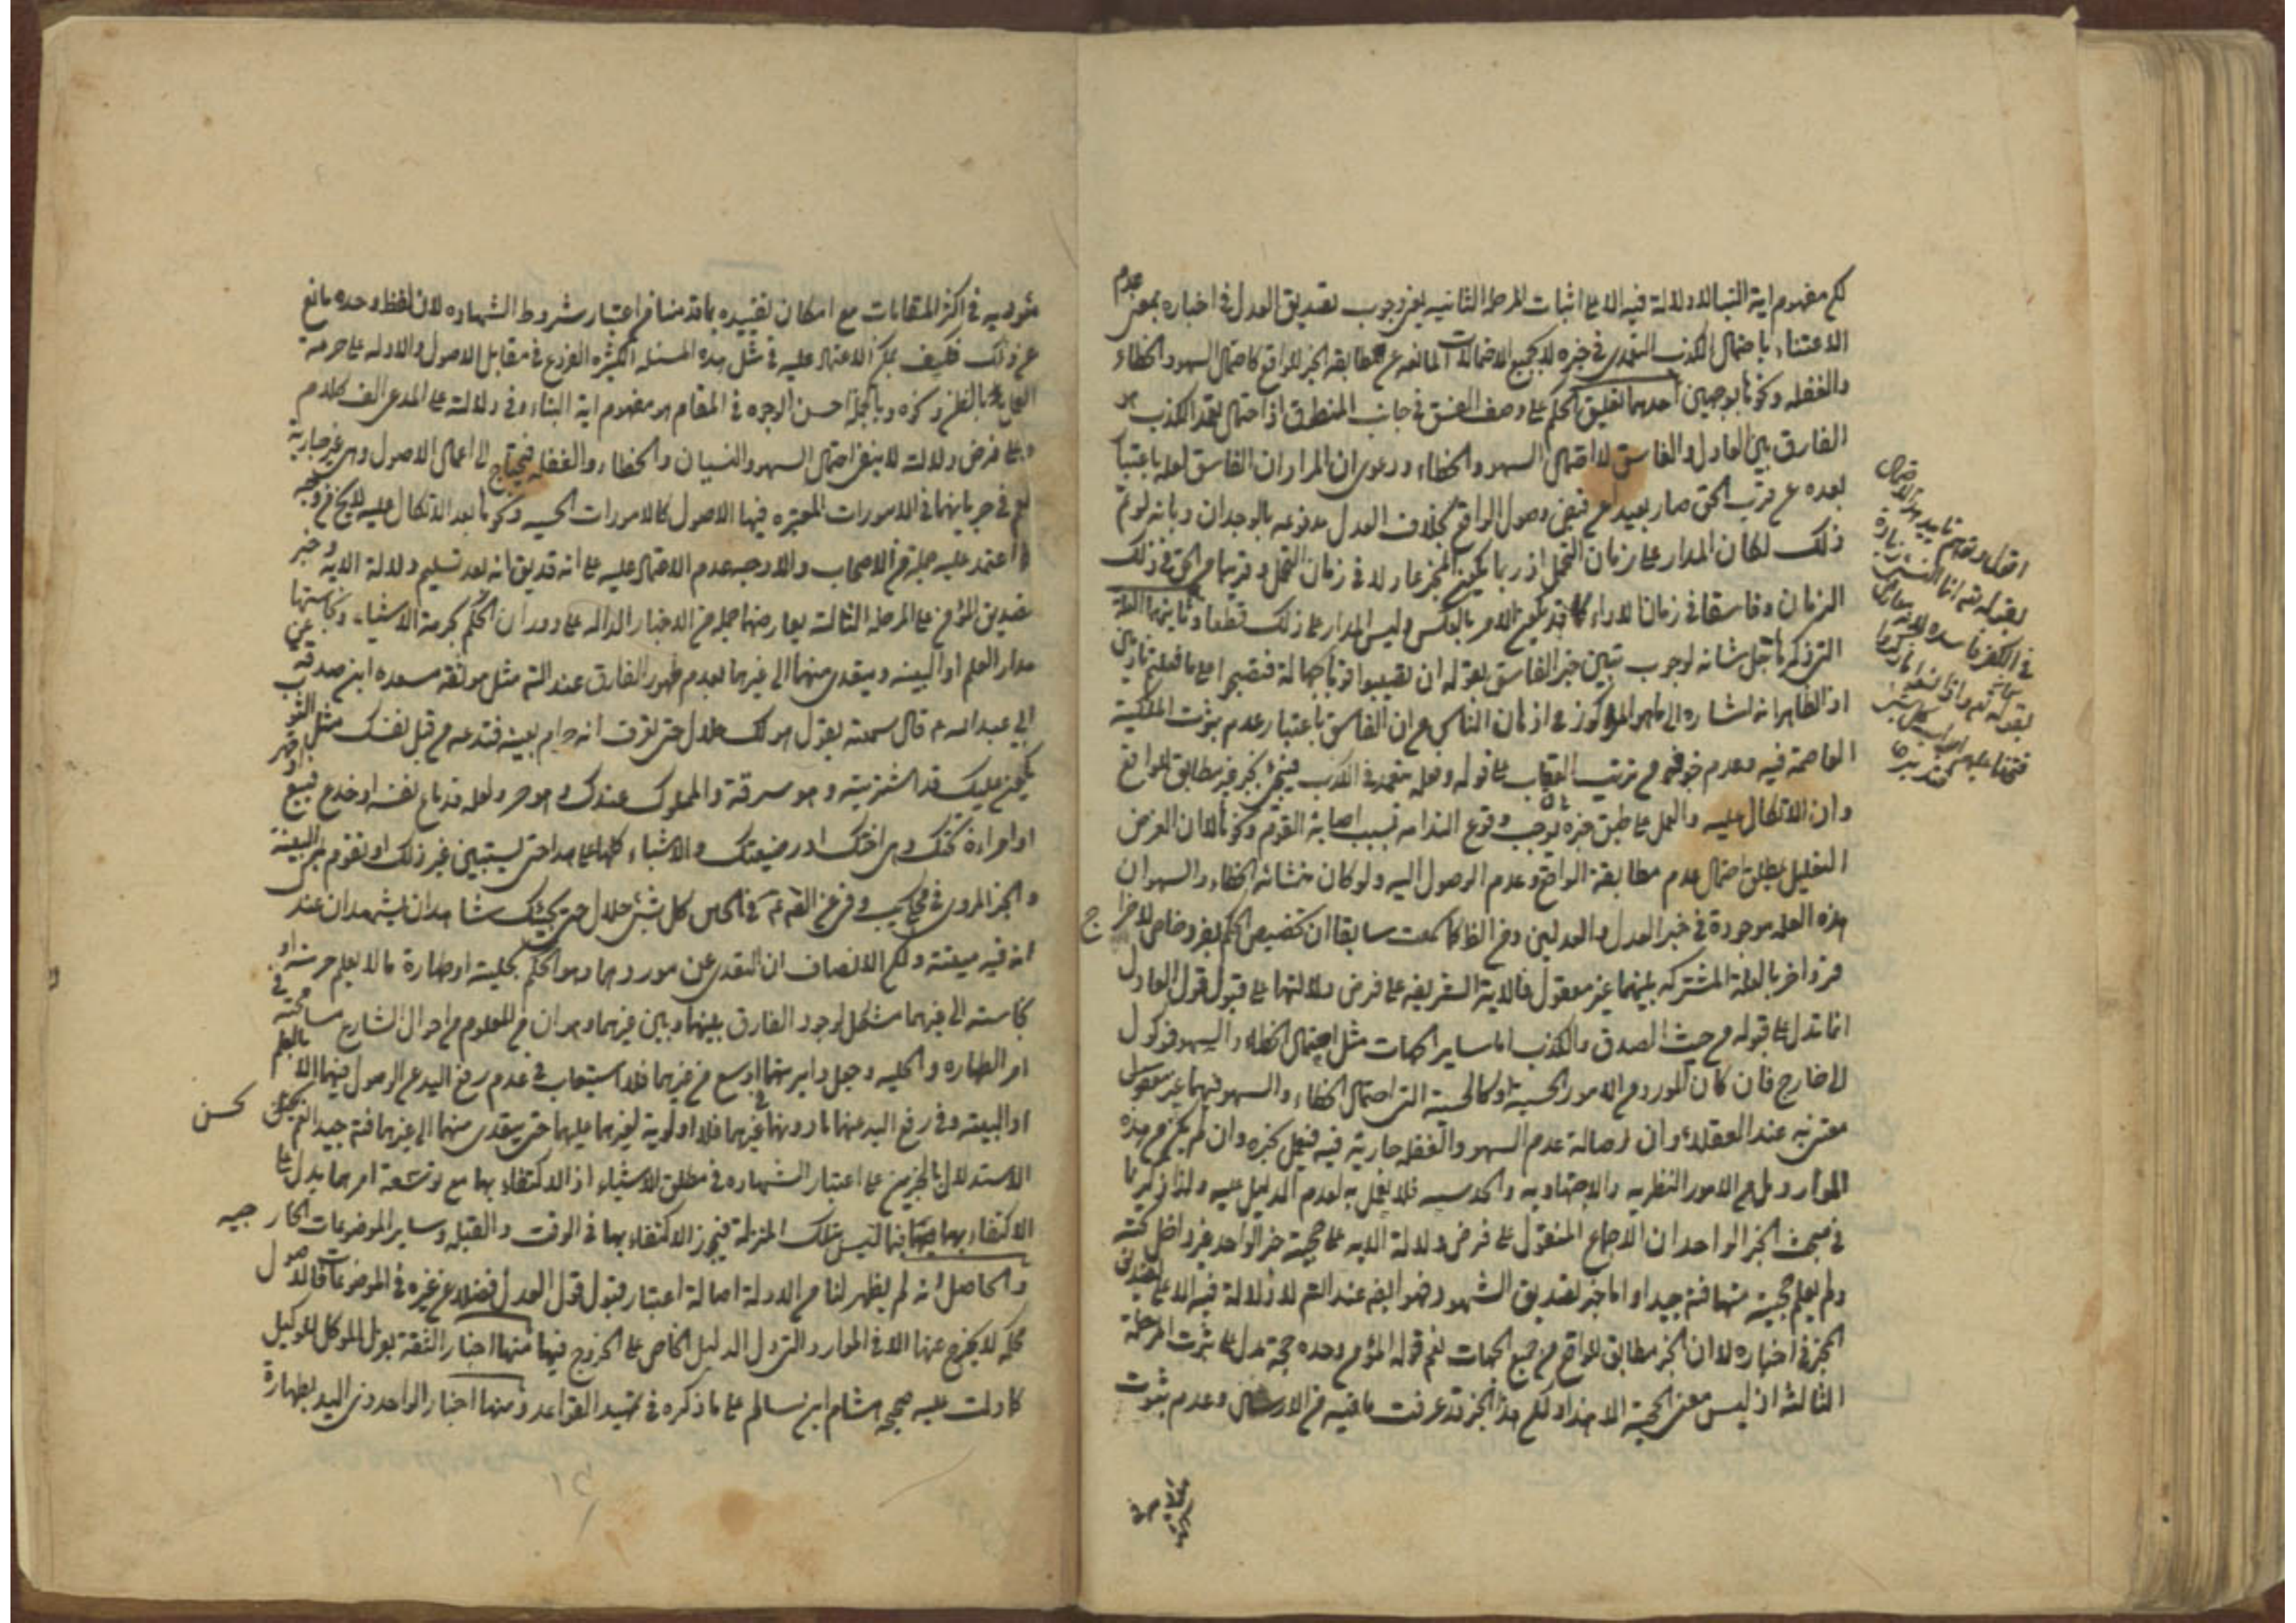 لكن مفهوم اية النبأ لا دلالة فيه الا على اثبات المرحلة الثانيه يعنى وجوب تصديق العدل فى اخباره بمعنى عدم
الاعتناء باحتمال الكذب التعمدى فى خبره لا بجميع الاحتمالات المانعه عن مطابقه الخبر للواقع كاحتمال السهو والخطاء
والغفله وكونها بوجهين احدهما تعليق الحكم على وصف الفسق فى جانب المنطوق اذ احتمال تعمد الكذب هو
الفارق بين العادل والفاسق لا احتمال السهو والخطاء ودعوى ان المراد ان الفاسق لعله باعتبار
بعده عن قرب الحق صار بعيدا عن فيض وصول الواقع بخلاف العدل مدفوعه بالوجدان وبانه لو تم
ذلك لكان المدار على زمان التحمل اذ ربما يكون المخبر عادلا فى زمان التحمل وقريبا من الحق فى ذلك
الزمان وفاسقا فى زمان الاداء كما قد يكون الامر بالعكس وليس المدار على ذلك قطعا وثانيهما العلة
التى ذكرها جل شانه لوجوب تبين خبر الفاسق بقوله ان تصيبوا قوما بجهالة فتصبحوا على ما فعلتم نادمين
اذ الظاهر انه اشاره الى ما هو المركوز فى اذهان الناس من ان الفاسق باعتبار عدم ثبوت الملكية
العاصمة فيه وعدم خوفه من ترتيب العقاب على قوله وفعله متعمد فى الكذب فيخبر بخبر غير مطابق للواقع
وان الاتكال عليه والعمل على طبق خبره يوجب وقوع الندامه بسبب اصابة القوم وكونها لان الغرض
التعليل بمطلق احتمال عدم مطابقة الواقع وعدم الوصول اليه ولو كان منشائه الخطاء والسهو ان
هذه العلة موجودة فى خبر العدل والعدلين ومن الظاهر كما سمعت سابقا ان تخصيص الحكم بفرد خاص لاخراج
فرد اخر بالعلة المشتركه بينهما غير معقول فالاية الشريفه على فرض دلالتها على قبول قول العادل
انما تدل على قبوله من حيث الصدق والكذب اما ساير الجهات مثل احتمال الخطاء والسهو فموكول
الى خارج فان كان المورد من الامور الحسية او كالحسية التى احتمال الخطاء والسهو فيهما غير معقول
معتنى به عند العقلاء وان اصالة عدم السهو والغفله جارية فيه فيعمل بخبره وان لم يكن من هذه
الموارد بل من الامور النظريه والاجتهاديه والحدسيه فلا يعمل به لعدم الدليل عليه ولذا ذكرنا
فى مبحث الخبر الواحد ان الاجماع المنقول على فرض دلالة الايه على حجية خبر الواحد غير داخل تحته
ولم يعلم حجيته منها فتدبر جيدا واما خبر تصديق الشهود فهو ايضا عند التم لا دلالة فيه الا على تصديق
المخبر فى اخباره لا ان الخبر مطابق للواقع من جميع الجهات نعم قوله المؤمن وحده حجة تدل على ثبوت المرحلة
الثالثة اذ ليس معنى الحجية الا هذا ولكن هذا الخبر قد عرفت ما فيه من الارسال وعدم ثبوت
مؤديه فى اكثر المقامات مع امكان تقييده بما قدمنا من اعتبار شروط الشهاده لان لفظ وحده مانع
عن ذلك فكيف يمكن الاعتماد عليه فى مثل هذه المسئله الكثيره الفروع فى مقابل الاصول والادله على حرمة
العمل بالظن وكونه وبالجمله احسن الوجوه فى المقام هو مفهوم اية النباء وفى دلالته على المدعى الف كلام
وعلى فرض دلالته لا ينفى احتمال السهو والنسيان والخطاء والغفله فيحتاج الى اعمال الاصول وهى غير جارية
نعم فى جريانهما فى الامورات المعتبره فيها الاصول كالامورات الحسيه وكونها بعد الاتكال عليه لا يخ من وجه
اعتمد عليه جملة من الاصحاب والاوجه عدم الاعتماد عليه على انه قد يق انه بعد تسليم دلالة الايه وخبر
تصديق المؤمن على المرحلة الثالثة يعارضهما جملة من الاخبار الداله على دوران الحكم بحرمة الاشياء ونجاستها
مدار العلم او البينه ويتعدى منهما الى غيرهما بعدم ظهور الفارق عند التم مثل موثقه مسعده ابن صدقه عن
ابى عبد الله ع قال سمعته يقول هو لك حلال حتى تعرف انه حرام بعينه فتدعه من قبل نفسك مثل الثوب
يكون عليك قد اشتريته وهو سرقة والمملوك عندك وهو حر ولعله قد باع نفسه او خدع فبيع او قهر
او امراءة تحتك وهى اختك او رضيعتك والاشياء كلها على هذا حتى يستبين غير ذلك او تقوم به البينة
والخبر المروى فى عن القه ع فى الجبن كل شئ حلال حتى يجيئك شاهدان يشهدان عند
انه فيه ميتة ولكن الانصاف ان التعدى عن موردهما وهو الحكم بحلية او طهارة ما لا يعلم حرمته او
نجاسته الى غيرهما مشكل لوجود الفارق بينهما وبين غيرهما وهو ان من المعلوم من احوال الشارع مسامحته فى
امر الطهاره والحليه وجعل دايرتهما اوسع من غيرهما فلا استيعاب فى عدم رفع اليد عن الاصول فيهما الا بالعلم
او البينه وفى رفع اليد عنها بما دونهما فى غيرهما فلا اولوية لغيرهما عليهما حتى يتعدى منهما الى غيرهما فتم جيدا نعم يمكن
الاستدلال بالخبرين على اعتبار الشهاده فى مطلق الاشياء اذ الاكتفاء بها مع توسعة امرهما يدل على
الاكتفاء بها فيما ليس بتلك المنزلة فيجوز الاكتفاء بها فى الوقت والقبله وساير الموضوعات الخارجيه
والحاصل انه لم يظهر لنا من الادلة اصالة اعتبار قبول قول العدل فضلا عن غيره فى الموضوعات فالاصول
محكمه لا يخرج عنها الا فى الموارد التى دل الدليل الخاص على الخروج فيها منها اخبار الثقة بعزل الموكل للوكيل
كما دلت عليه صحيحه هشام ابن سالم على ما ذكره فى تمهيد القواعد ومنها اخبار الواحد ذى اليد بطهارة